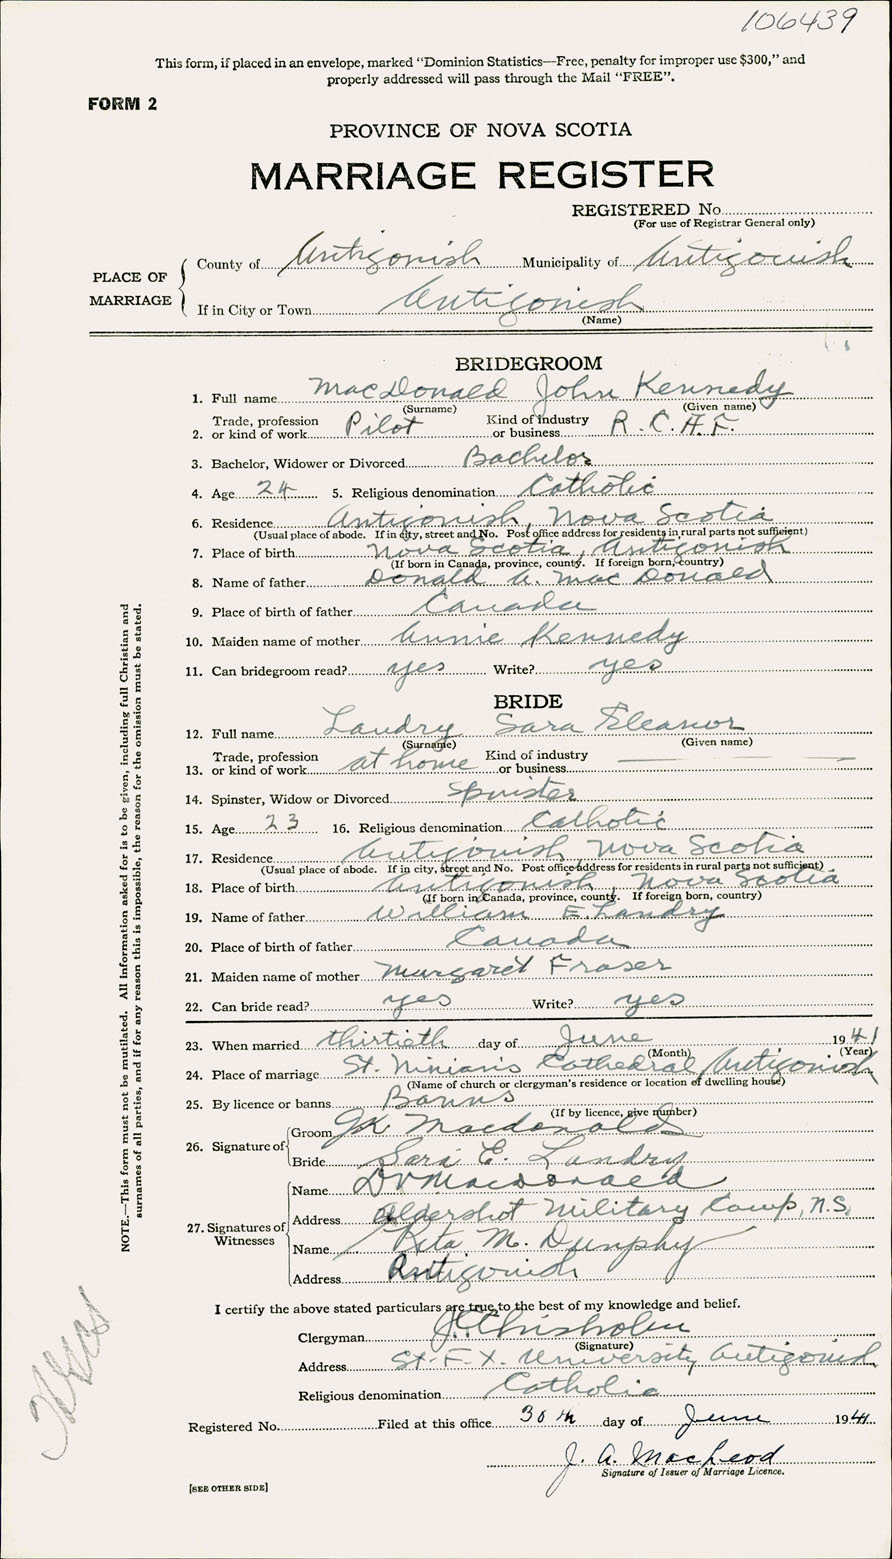 106439
This form, if placed in an envelope, marked "Dominion Statistics—Free, penalty for improper use $300," and
properly addressed will pass through the Mail "FREE".
FORM 2
PROVINCE OF NOVA SCOTIA
MARRIAGE REGISTER
REGISTERED No.
(For use of Registrar General only)
PLACE OF MARRIAGE
County of Antigonish Municipality of Antigonish
If in City or Town Antigonish
(Name)
BRIDEGROOM
1. Full name MacDonald John Kennedy
(Surname) (Given name)
2. Trade, profession or kind of work Pilot Kind of industry or business R.C.A.F.
3. Bachelor, Widower or Divorced Bachelor
4. Age 24 5. Religious denomination Catholic
6. Residence Antigonish, Nova Scotia
(Usual place of abode. If in city, street and No. Post office address for residents in rural parts not sufficient)
7. Place of birth Nova Scotia, Antigonish
(If born in Canada, province, county. If foreign born, country)
8. Name of father Donald A. MacDonald
9. Place of birth of father Canada
10. Maiden name of mother Annie Kennedy
11. Can bridegroom read? yes Write? yes
BRIDE
12. Full name Landry Sara Eleanor
(Surname) (Given name)
13. Trade, profession or kind of work at home Kind of industry or business
14. Spinster, Widow or Divorced Spinster
15. Age 23 16. Religious denomination Catholic
17. Residence Antigonish Nova Scotia
(Usual place of abode. If in city, street and No. Post office address for residents in rural parts not sufficient)
18. Place of birth Antigonish, Nova Scotia
(If born in Canada, province, county. If foreign born, country)
19. Name of father William E. Landry
20. Place of birth of father Canada
21. Maiden name of mother Margaret Fraser
22. Can bride read? yes Write? yes
23. When married thirtieth day of June 1941
(Month) (Year)
24. Place of marriage St. Ninian's Cathedral, Antigonish
(Name of church or clergyman's residence or location of dwelling house)
25. By licence or banns Banns
(If by licence, give number)
26. Signature of Groom JK Macdonald
Bride Sara E. Landry
27. Signatures of Witnesses
Name DVMacdonald
Address Aldershot Military Camp, N.S.
Name Rita M. Dunphy
Address Antigonish
I certify the above stated particulars are true to the best of my knowledge and belief.
Clergyman Chisholm
(Signature)
Address St. F. X. University Antigonish
Religious denomination Catholic
Registered No. Filed at this office 30th day of June 1941
J. A. MacLeod
Signature of Issuer of Marriage Licence.
[SEE OTHER SIDE]
NOTE.—This form must not be mutilated. All Information asked for is to be given, including full Christian and
surnames of all parties, and if for any reason this is impossible, the reason for the omission must be stated.